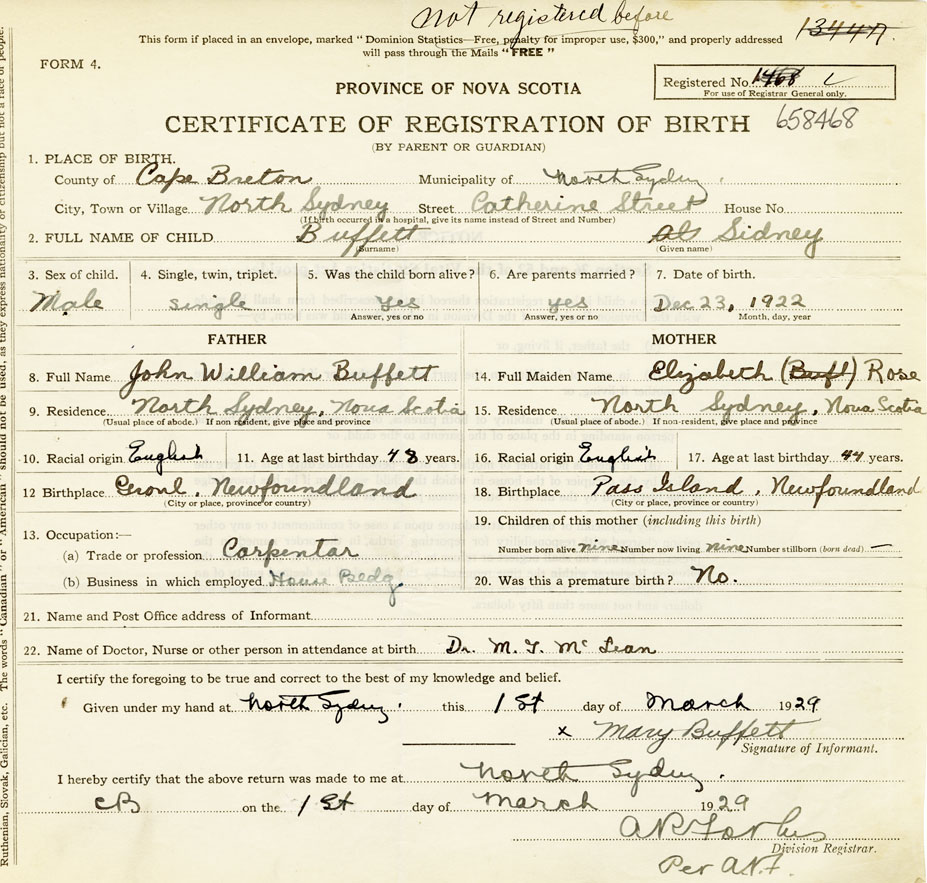 Not registered before
This form if placed in an envelope, marked " Dominion Statistics—Free, penalty for improper use, $300," and properly addressed
will pass through the Mails "FREE "
FORM 4.
PROVINCE OF NOVA SCOTIA
Registered No.
For use of Registrar General only.
CERTIFICATE OF REGISTRATION OF BIRTH 658468
(BY PARENT OR GUARDIAN)
1. PLACE OF BIRTH.
County of Cape Breton Municipality of North Sydney.
City, Town or Village North Sydney Street Catherine Street House No
(If birth occurred in a hospital, give its name instead of Street and Number)
2. FULL NAME OF CHILD Buffett Sidney
(Surname) (Given name)
3. Sex of child. 4. Single, twin, triplet. 5. Was the child born alive? 6. Are parents married? 7. Date of birth.
Male single yes yes Dec 23, 1922
Answer, yes or no Answer, yes or no Month, day, year
FATHER MOTHER
8. Full Name John William Buffett 14. Full Maiden Name Elizabeth Rose
9. Residence North Sydney, Nova Scotia 15. Residence North Sydney, Nova Scotia
(Usual place of abode.) If non resident, give place and province (Usual place of abode.) If non-resident, give place and province
10. Racial origin English 11. Age at last birthday 48 years. 16. Racial origin English 17. Age at last birthday 44 years.
12 Birthplace Newfoundland 18. Birthplace Pass Island, Newfoundland
(City or place, province or country) (City or place, province or country)
19. Children of this mother (including this birth)
13. Occupation:—
(a) Trade or profession Carpentar Number born alive nine Number now living nine Number stillborn (born dead) —
(b) Business in which employed House 20. Was this a premature birth? No.
21. Name and Post Office address of Informant
22. Name of Doctor, Nurse or other person in attendance at birth Dr. M. J. McLean
I certify the foregoing to be true and correct to the best of my knowledge and belief.
Given under my hand at North Sydney. this 1st day of March 1929
x Mary Buffett
Signature of Informant.
I hereby certify that the above return was made to me at North Sydney.
CB on the 1st day of March 1929
Division Registrar.
Per
Ruthenian, Slovak, Galician, etc. The words " Canadian " or " American " should not be used, as they express nationality or citizenship but not a race of people.